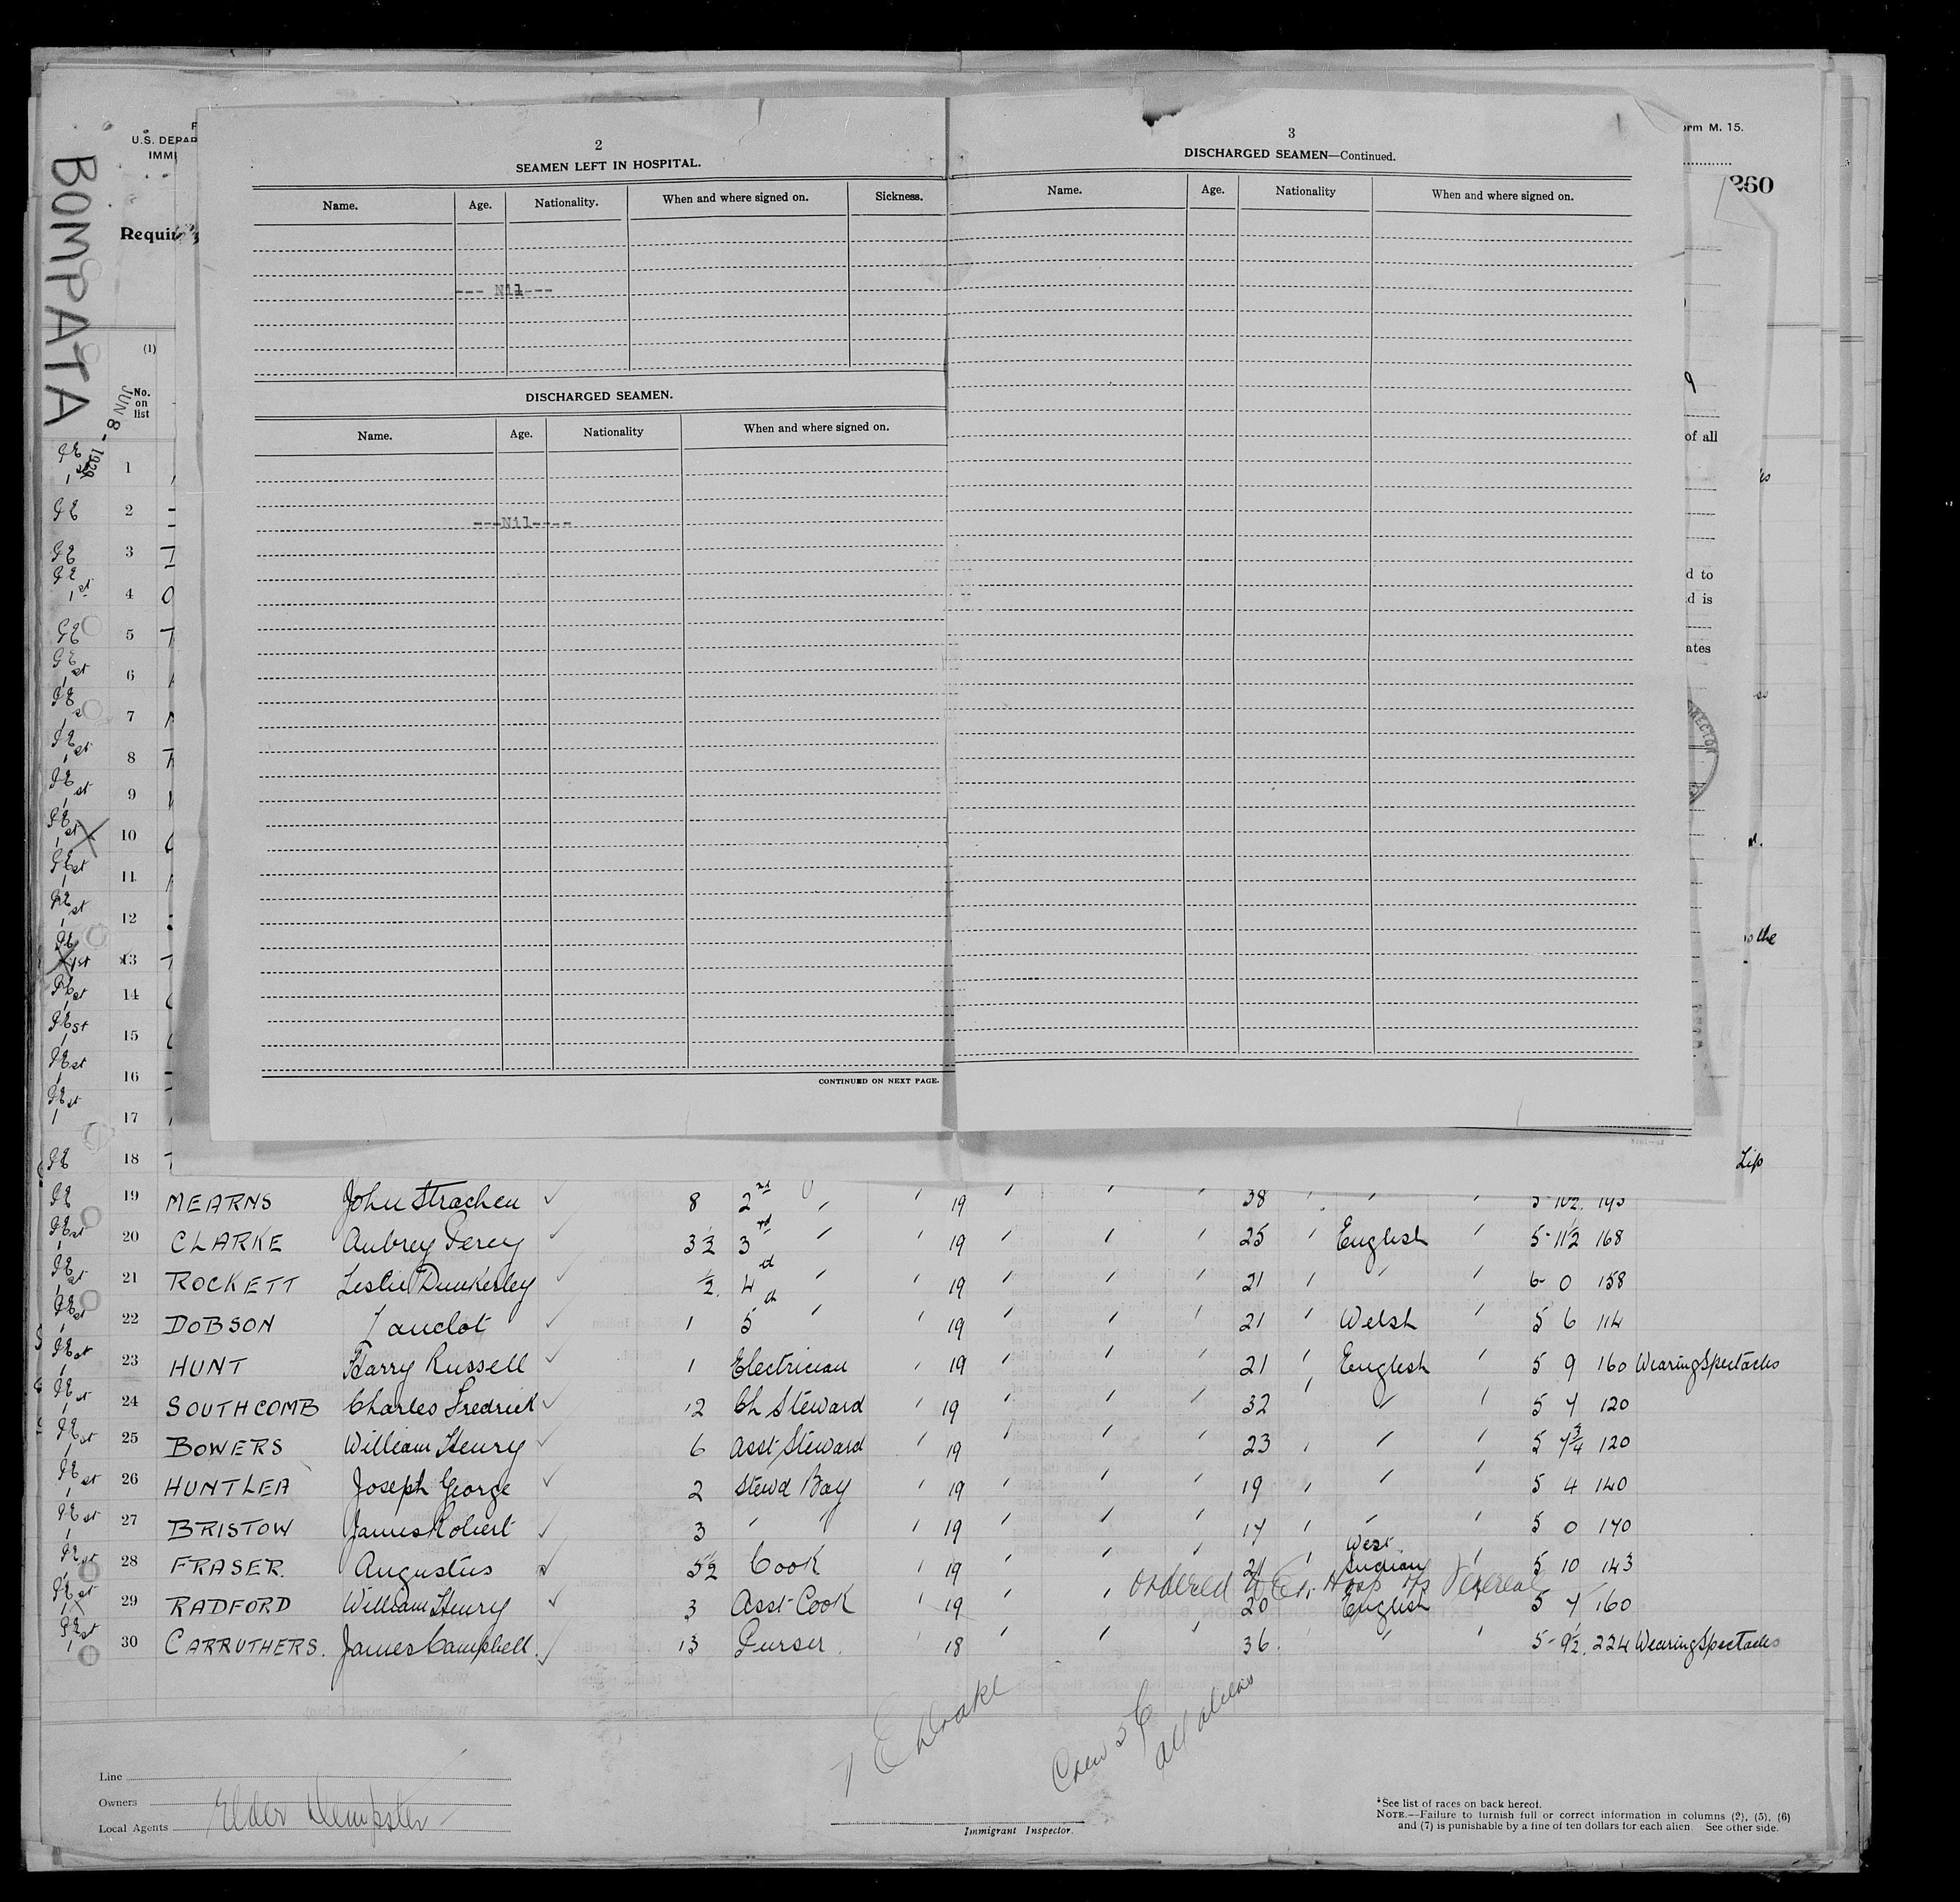 BOMPATA
JUN 8 - 1929
U.S. DEPAR
IMMI
Requir
orm M. 15.
260
2
SEAMEN LEFT IN HOSPITAL.
Name. Age. Nationality. When and where signed on. Sickness.
--- Nil ---
DISCHARGED SEAMEN.
Name. Age. Nationality When and where signed on.
---Nil----
CONTINUED ON NEXT PAGE.
3
DISCHARGED SEAMEN—Continued.
Name. Age. Nationality When and where signed on.
of all
d to
d is
ates
the
Lip
(1)
No. on list
1
2
3
4
5
6
7
8
9
10
11
12
13
14
15
16
17
18
19 MEARNS John Strachen 8 2nd 19 38
20 CLARKE Aubrey Percy 3 1/2 3rd " 19 25 English 5-11 1/2 168
21 ROCKETT Leslie Dunkerley 1/2 4 " 19 21 " 6-0 158
22 DOBSON 1 5 " 19 21 Welsh 5 6 114
23 HUNT Harry Russell 1 Electrician 19 21 English 5 9 160 Wearing Spectacles
24 SOUTHCOMB Charles Fredrick 12 Ch Steward 19 32 " 5 7 120
25 BOWERS William Henry 6 Asst Steward 19 23 " 5 7 3/4 120
26 HUNTLEA Joseph George 2 Stewd Boy 19 19 " 5 4 140
27 BRISTOW James Robert 3 " " 19 17 " 5 0 170
28 FRASER. Augustus 5 1/2 Cook 19 21 West Indian " 5 10 143
29 RADFORD William Henry 3 Asst Cook 19 20 English 5 7 160
30 CARRUTHERS. James Campbell 13 Purser 18 36 " 5-9 1/2. 224 Wearing Spectacles
Crew
all aliens
Line
Owners
Local Agents Elder Dempster
Immigrant Inspector.
*See list of races on back hereof.
NOTE.—Failure to furnish full or correct information in columns (2), (5), (6)
and (7) is punishable by a fine of ten dollars for each alien. See other side.